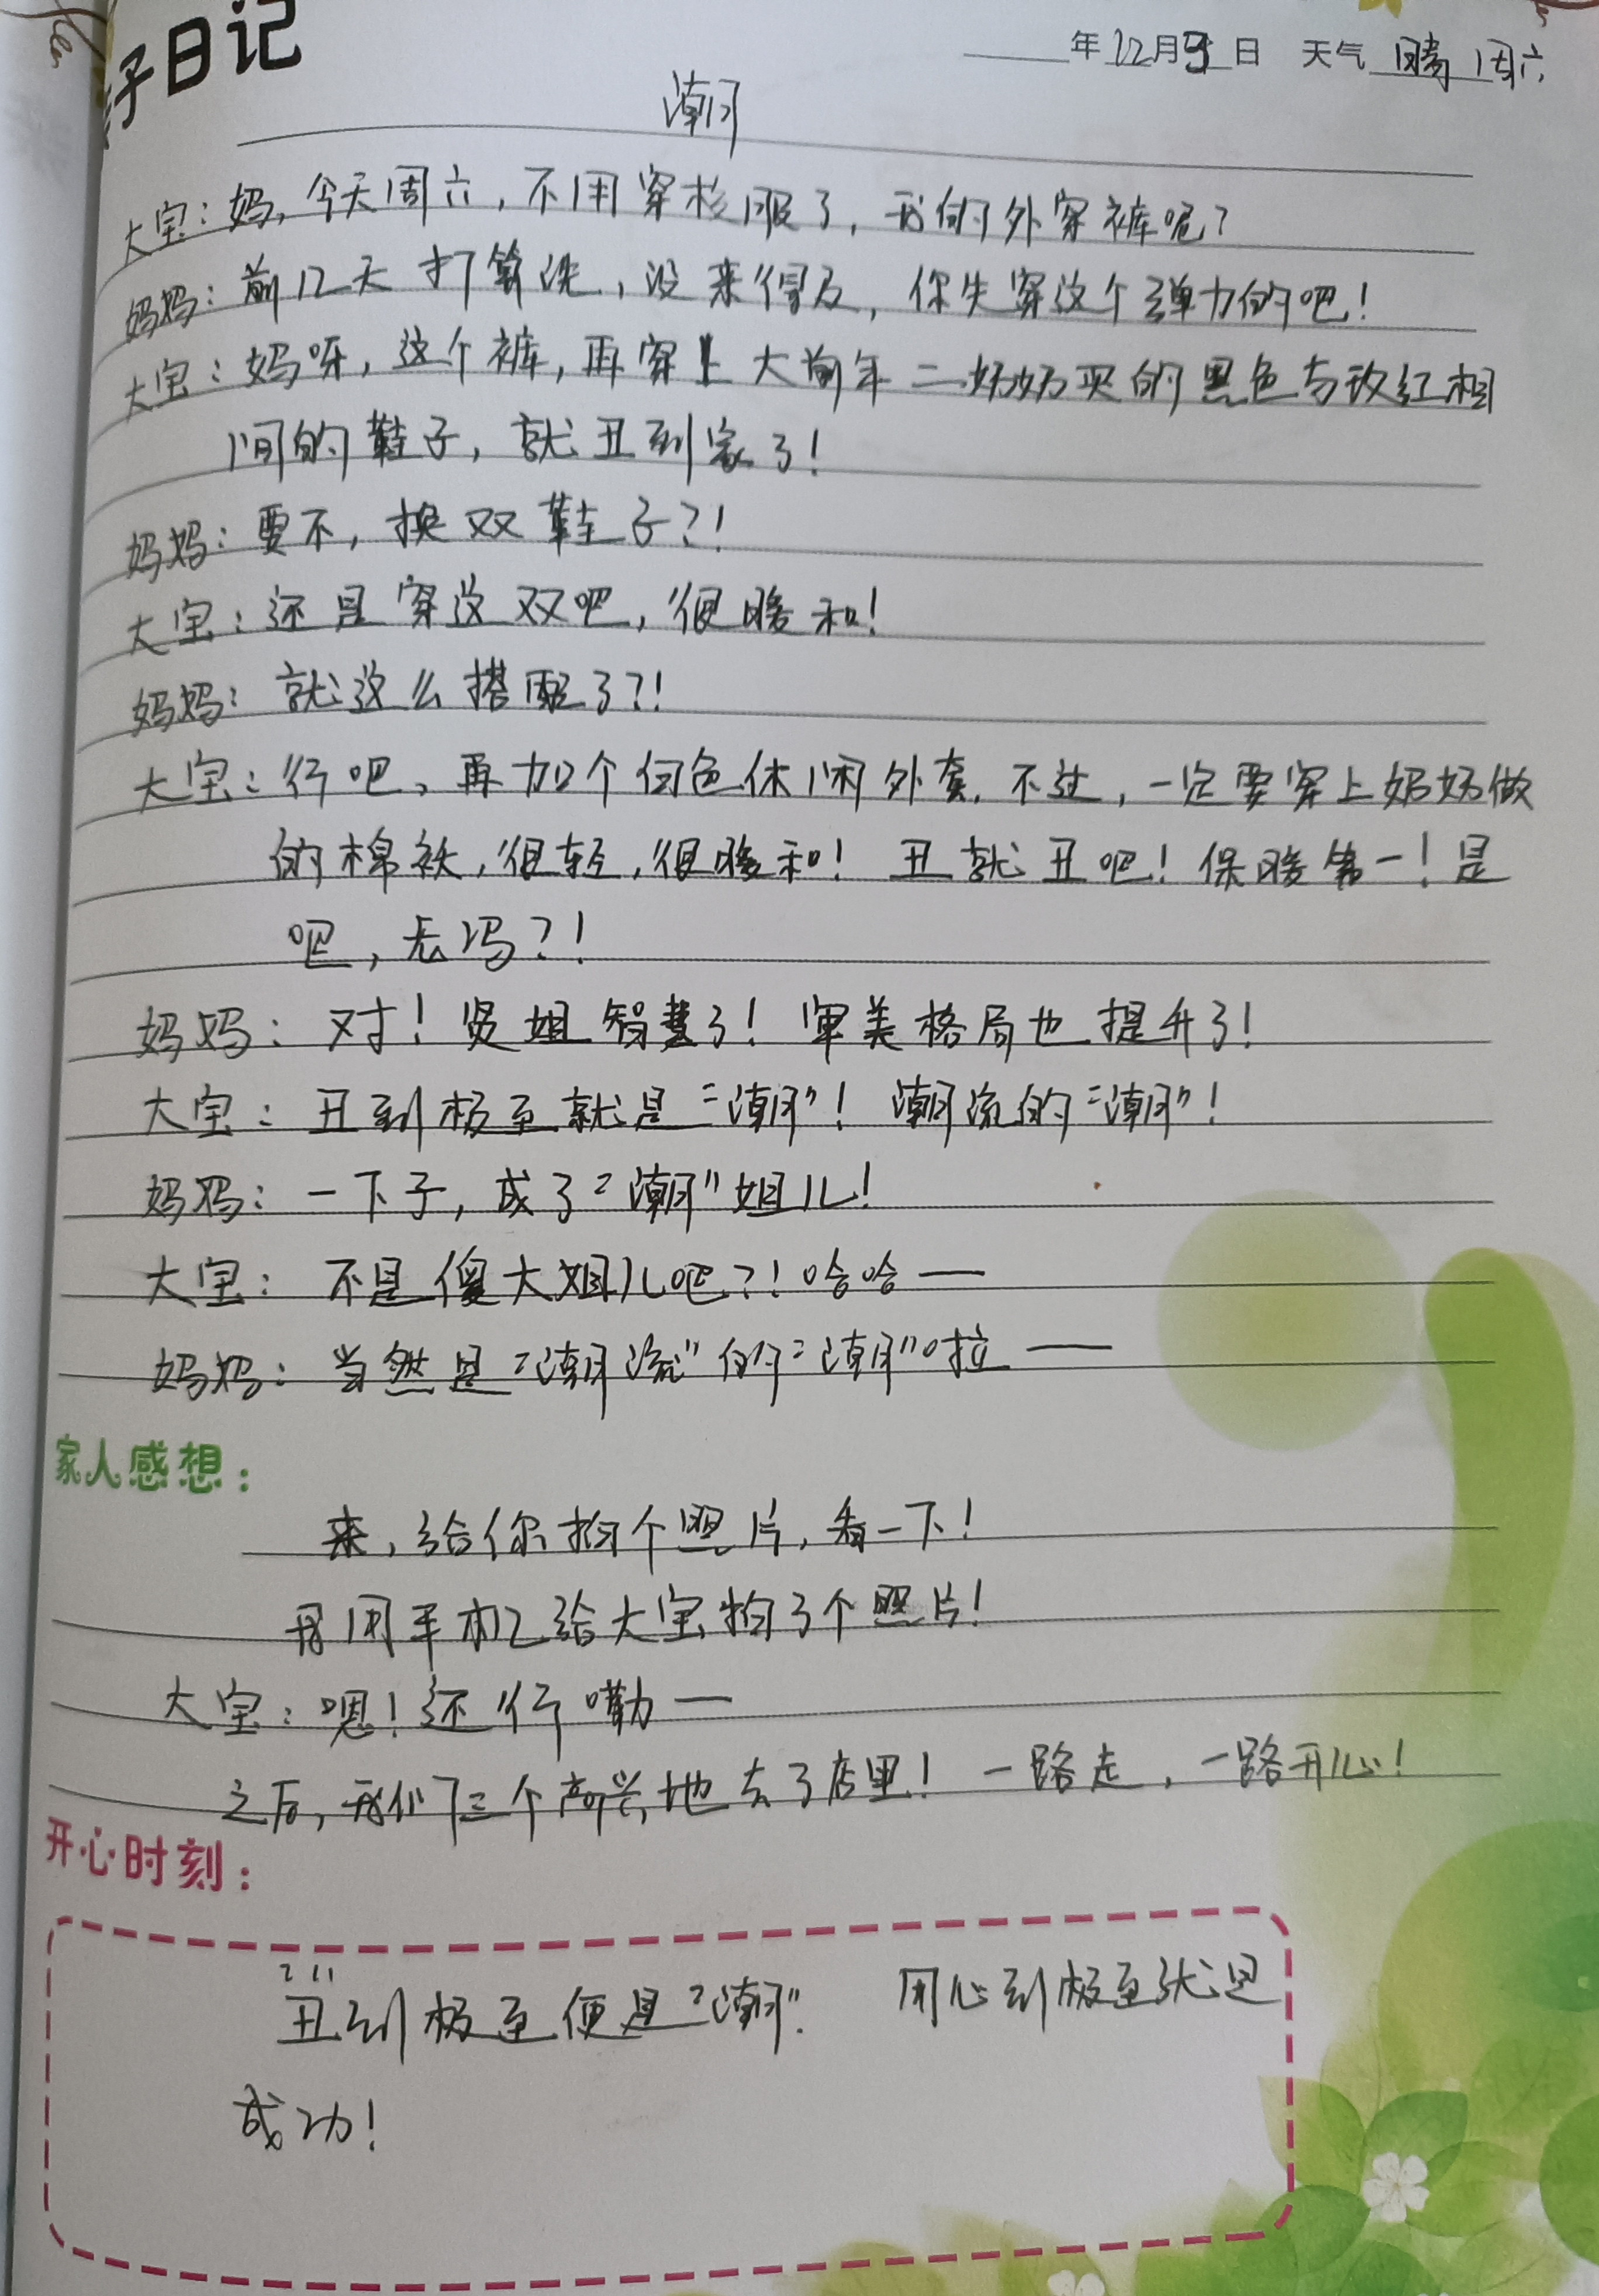 子日记
年12月9日 天气 晴 周六
潮
大宝：妈，今天周六，不用穿校服了，我的外穿裤呢？
妈妈：前几天打算洗，没来得及，你先穿这个弹力的吧！
大宝：妈呀，这个裤，再穿上大前年二奶奶买的黑色与玫红相
间的鞋子，就丑到家了！
妈妈：要不，换双鞋子？！
大宝：还是穿这双吧，很暖和！
妈妈：就这么搭配了？！
大宝：行吧，再加个白色休闲外套，不过，一定要穿上奶奶做
的棉袄，很轻，很暖和！丑就丑吧！保暖第一！是
吧，老妈？！
妈妈：对！贤姐智慧了！审美格局也提升了！
大宝：丑到极至就是“潮”！潮流的“潮”！
妈妈：一下子，成了“潮”姐儿！
大宝：不是傻大姐儿吧？！哈哈——
妈妈：当然是“潮流”的“潮”啦——
家人感想：
来，给你拍个照片，看一下！
用手机给大宝拍了个照片！
大宝：嗯！还行嘞—
之后，我们三个高兴地去了店里！一路走，一路开心！
开心时刻：
丑到极至便是“潮”. 用心到极至就是
成功！